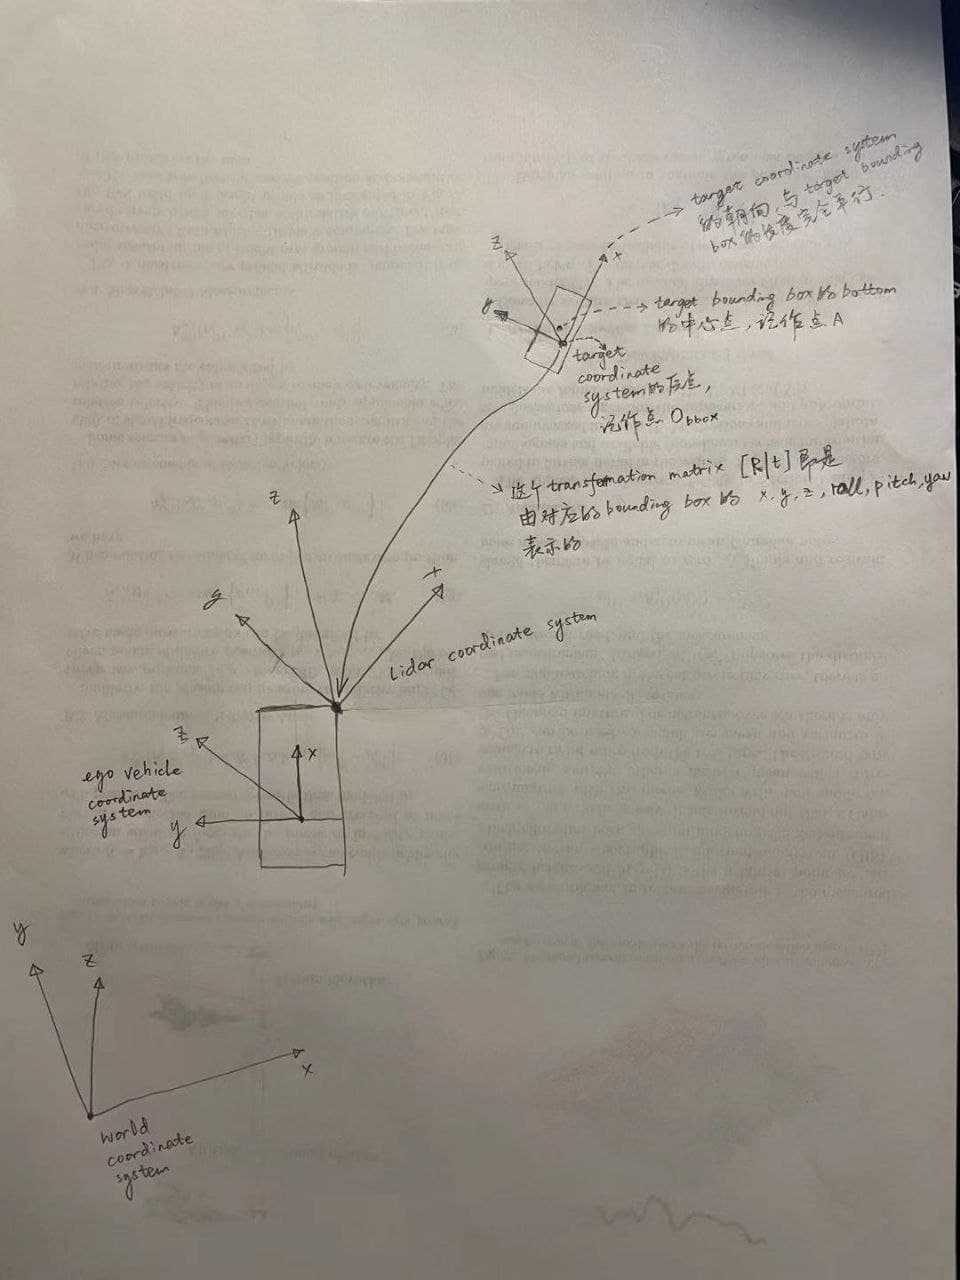 target coordinate system
的朝向,与target bounding
box的长度完全平行.
z
x
y
target bounding box的bottom
的中心点,记作点A
target
coordinate
system的原点,
记作点Obbox
这个transfomation matrix [R|t] 即是
由对应的bounding box的 x, y, z, roll, pitch, yaw
表示的
z
y
x
Lidar coordinate system
z
x
y
ego vehicle
coordinate
system
y
z
x
World
coordinate
system